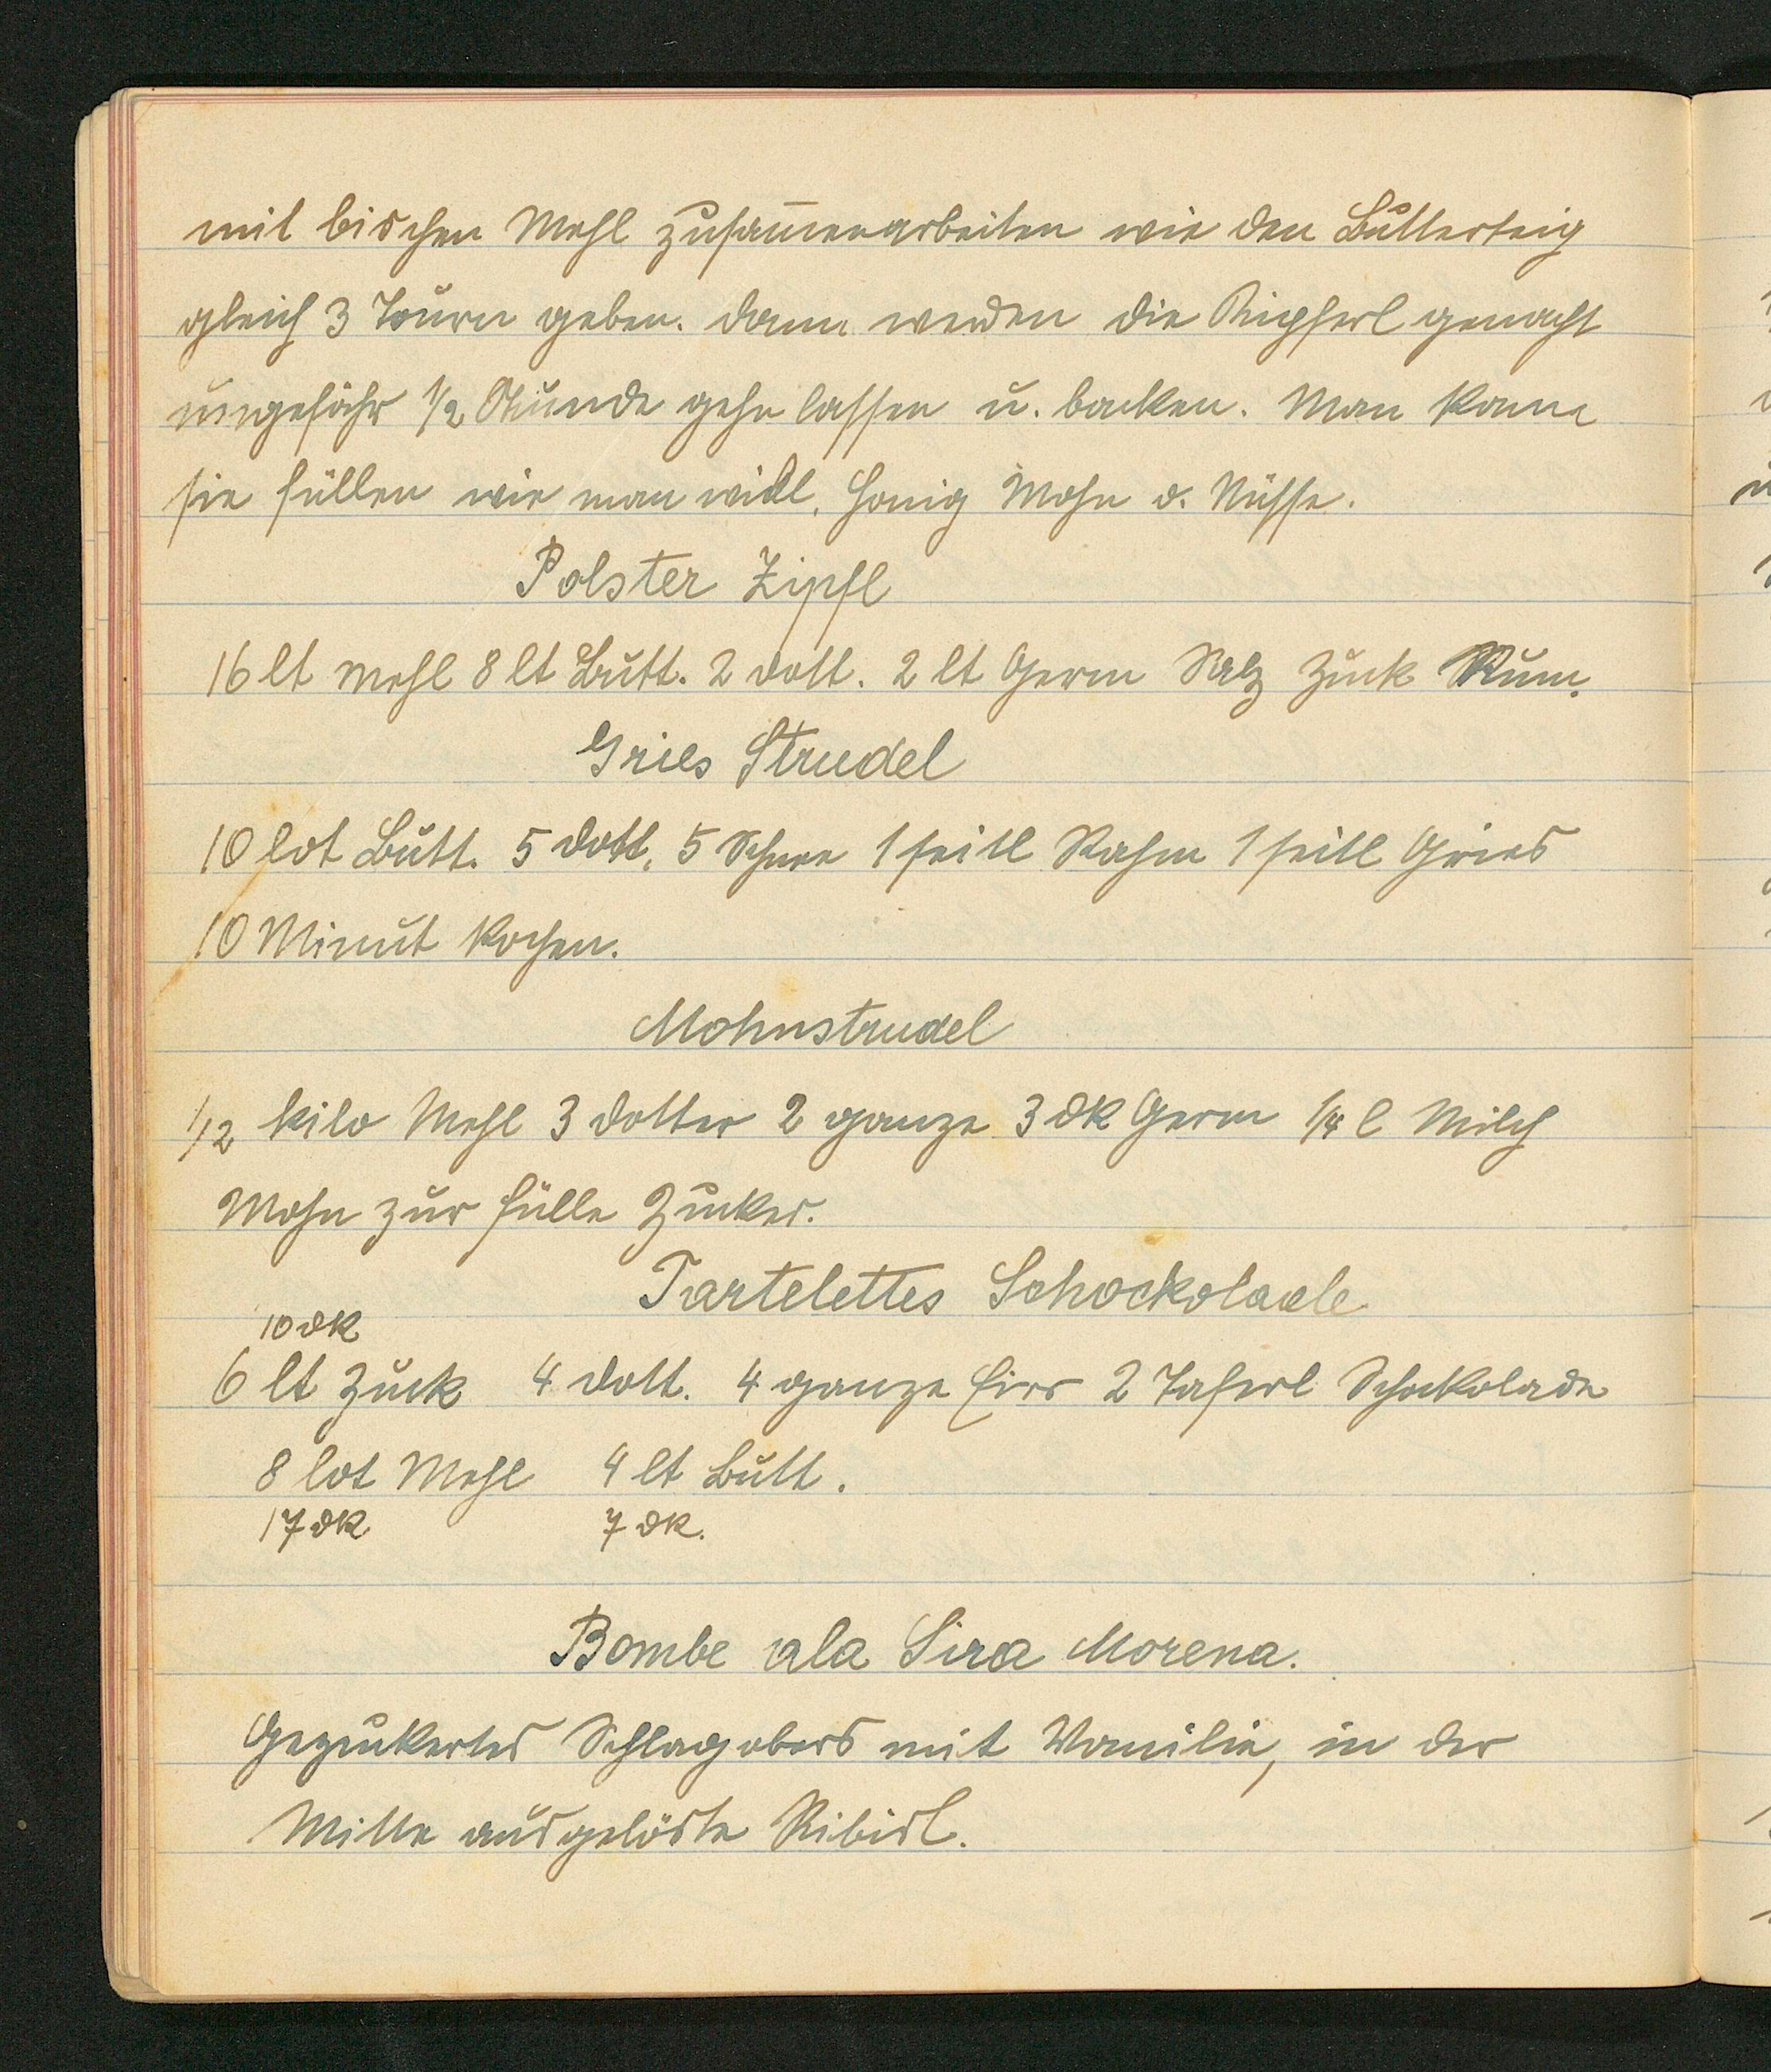 mit bischen Mehl zusam̄enarbeiten wie den Butterteig
gleich 3 Tourn geben. dann werden die Kipferl gemacht
ungefähr 1/2 Stunde gehn lassen u. backen. Man kann
sie füllen wie man will. Honig Mohn o. Nüsse.
Polster Zipfl
16 lt Mehl 8 lt Butt. 2 dott. 2 lt Germ Salz Zuck Rum.
Gries Strudel
10 lot Butt. 5 dott. 5 Schnee 1 seitl Rahm 1 seitl Gries
10 Minut kochen.
Mohnstrudel
1/2 kilo Mehl 3 dotter 2 ganze 3 dk Germ 1/4 l Milch
Mohn zur fülle Zucker.
Tartelettes Schockolade
10 dk
6 lt Zuck 4 dott. 4 ganze Eier 2 Taferl Schockolade
8 lot Mehl 4 lt Butt.
17 dk 7 dk.
Bombe ala Sira Morena.
Gezukertes Schlagobers mit Vanilie, in der
Mitte ausgelöste Ribisl.